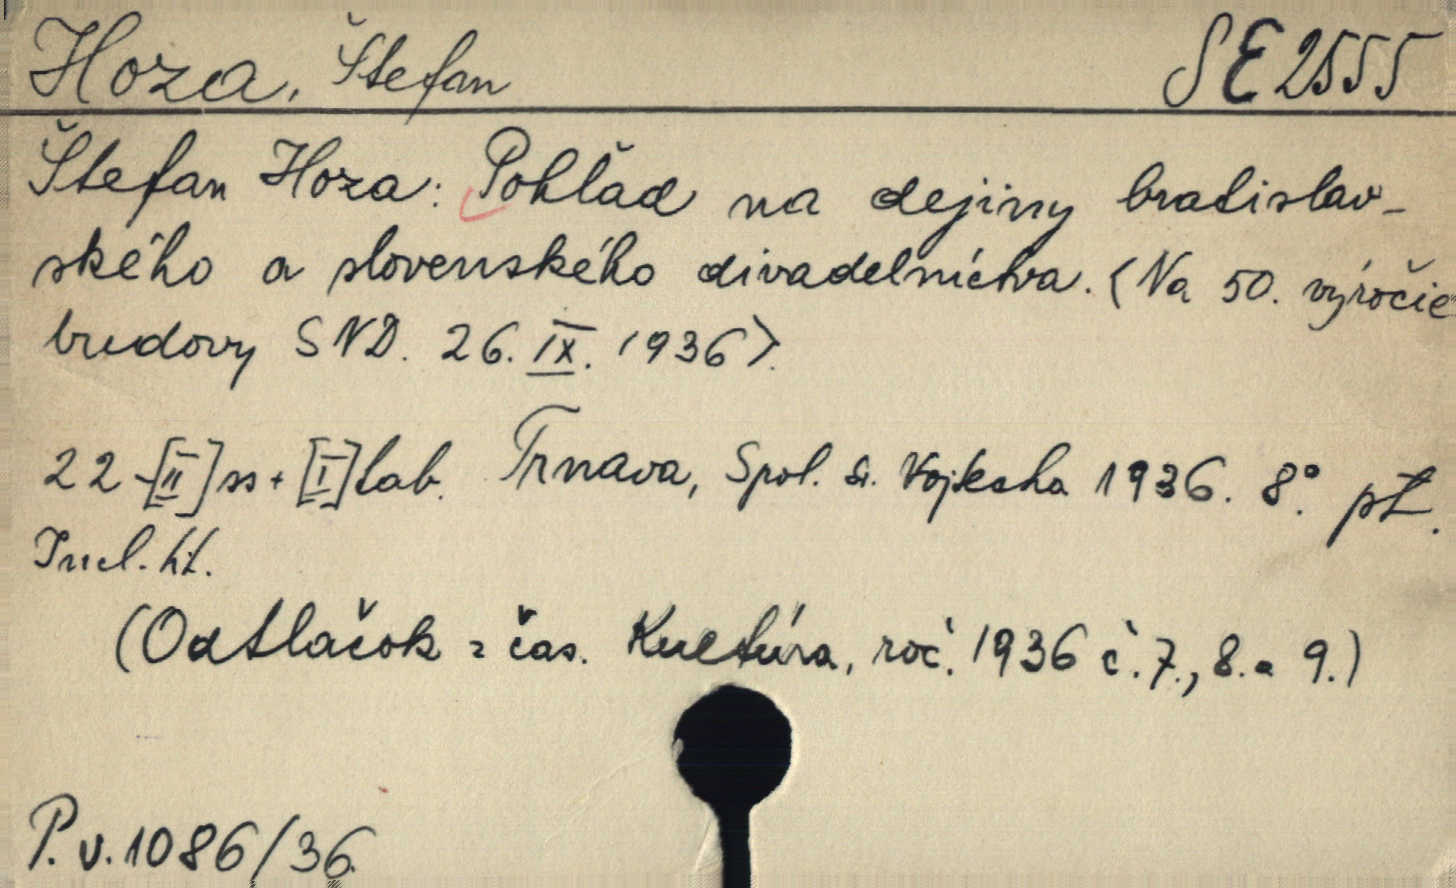 Hoza, Štefan SE 2555
Štefan Hoza: Pohľad na dejiny bratislav-
ského a slovenského divadelníctva. (Na 50. výročie
budovy SND. 26. IX. 1936).
22-[II] ss + [I] tab. Trnava, Spol. sv. Vojtecha 1936. 8°.
Incl. tit.
(Odtlačok z čas. Kultúra, roč. 1936 č. 7., 8. a 9.)
P. v. 1086/36